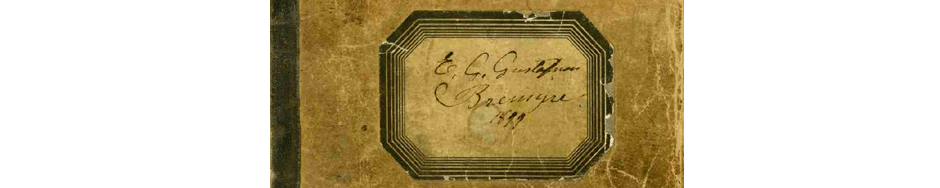 E. G. Gustafsson
Bremyre
1899